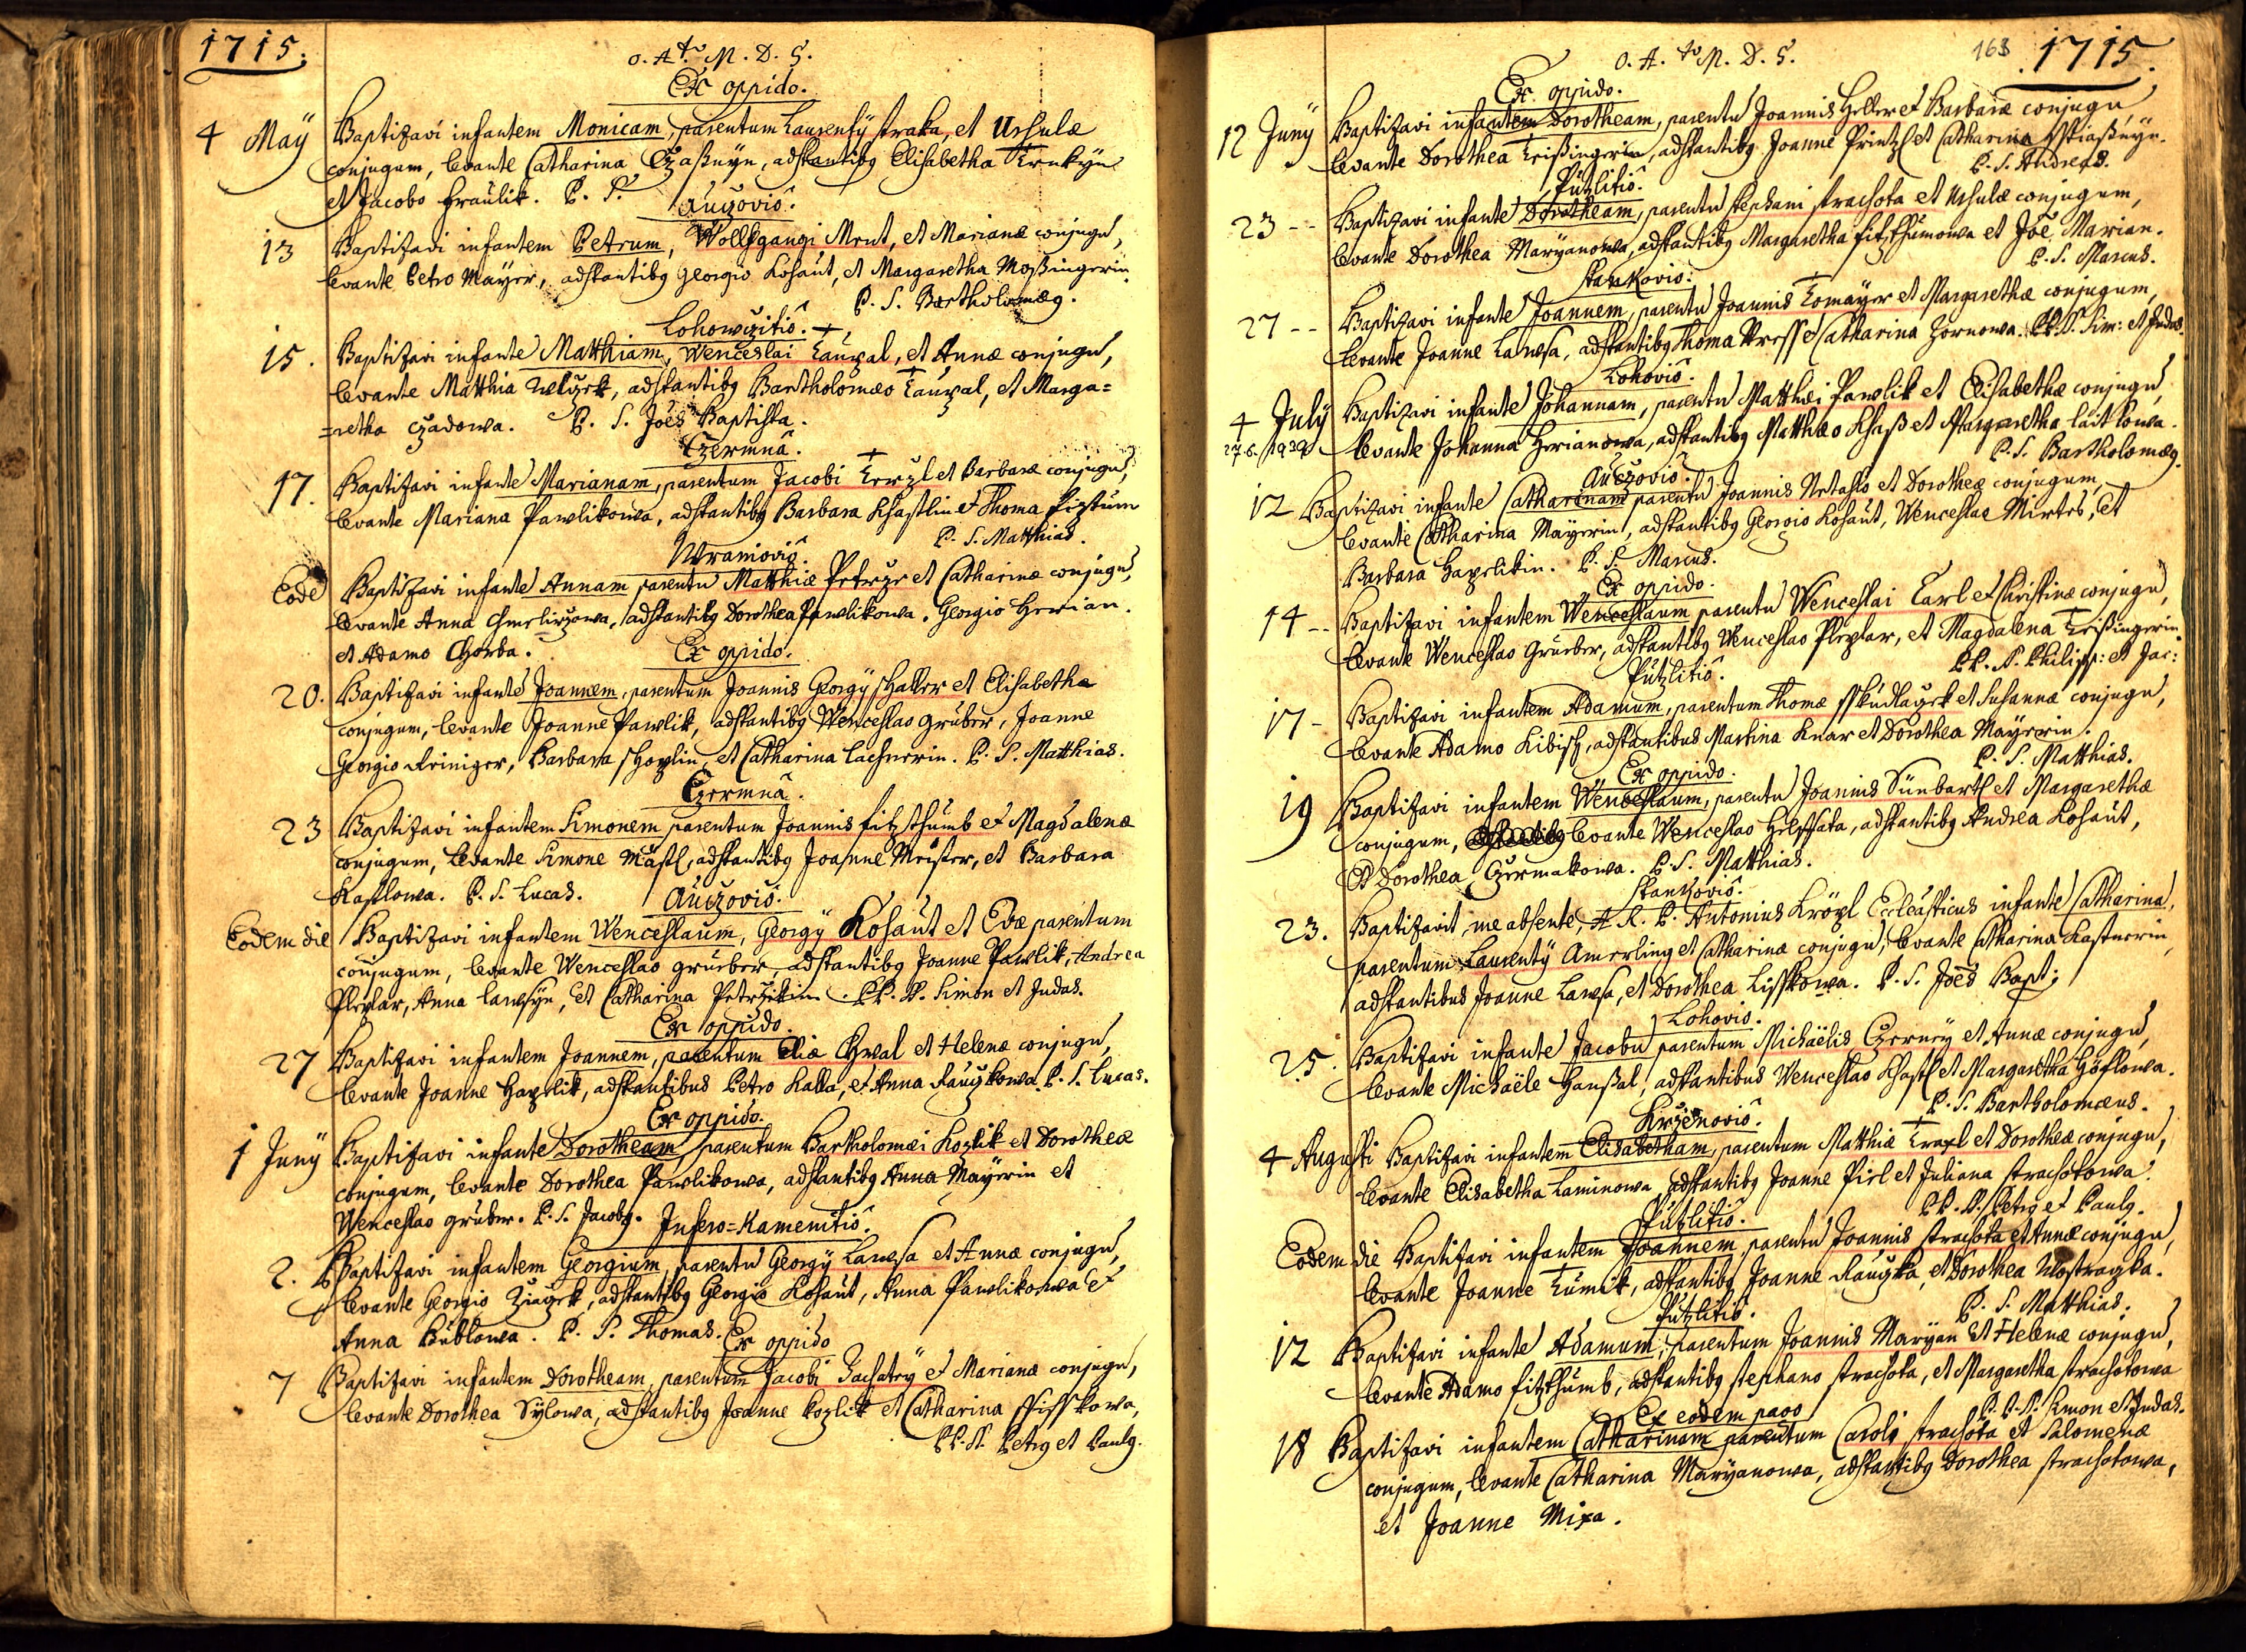 1715.
O. A. to M. D. G.
Ex oppido.
4 Maÿ Baptizavi infantem Monicam, parentum Laurentÿ Straka, et Ursulæ
conjugum, levante Catharina, adstantibg Elisabetha
et Jacobo Fraülik. P. S.
Auczoviô.
13 Baptizavi infantem Petrum, Wolfgangi Ment, et Marianæ conjugu,
levante Petro Mayer, adstantibg Georgio Kohaut, et Margaretha Moßingerin.
P. S. Bartholomæg.
Lohowczitiô.
15. Baptizavi infante Matthiam, Wenceslai Kauzal, et Annæ conjugu,
levante Matthia, adstantibg Bartholomæo Kauzal, et Marga=
=retha Czadowa. P. S. Joës Baptista.
Czermnâ.
17. Baptizavi infante Marianam, parentum Jacobi et Barbaræ conjugu,
levante Mariana Pawlikowa, adstantibg Barbara Khastlin et Thoma Fiztum
P. S. Matthias.
Wranioviô.
Eode Baptizavi infante Annam parentu Matthiæ Petrzr et Catharinæ conjugu,
levante Anna, adstantibg Dorothea Pawlikowa. Georgio Herian.
et Adamo Chorba.
Ex oppido.
20. Baptizavi infante Joannem, parentum Joannis Georgÿ Shaller et Elisabetha
conjugum, levante Joanne Pawlik, adstantibg Wenceslao Gruber, Joanne
Georgio Reiniger, Barbara, et Catharina Lachnerin. P. S. Matthias.
Czermnâ.
23 Baptizavi infantem Simonem parentum Joannis Fitzthumb et Magdalenæ
conjugum, levante Simone Mastl, adstantibg Joanne Meister, et Barbara
Kastlowa. P. S. Lucas.
Auczoviô.
Eodem die Baptizavi infantem Wenceslaum, Georgÿ Kohaut et Evæ parentum
conjugum, levante Wenceslao Gruber, adstantibg Joanne Pawlik, Andrea
Plezlar, Anna Lawsyn, et Catharina Petrzikin. PP. SS. Simon et Judas.
Ex oppido.
27 Baptizavi infantem Joannem, parentum Eliæ Chwal et Helenæ conjugu,
levante Joanne Hazlik, adstantibus Petro Kalla, et Anna Rauzkowa. P. S. Lucas.
Ex oppido.
1 Junÿ Baptizavi infante Dorotheam, parentum Bartholomæi Kozlik et Dorotheæ
conjugum, levante Dorothea Pawlikowa, adstantibg Anna Mayerin et
Wenceslao Gruber. P. S. Jacobg.
Infero=Kamenitiô.
2. Baptizavi infantem Georgium, parentu Georgÿ Lawsa et Annæ conjugu,
levante Georgio, adstantibg Georgio Kohaut, Anna Pawlikowa et
Anna Bublowa. P. S. Thomas.
Ex oppido
7 Baptizavi infantem Dorotheam, parentum Jacobi Zachatrÿ et Marianæ conjugu,
levante Dorothea Sylowa, adstantibg Joanne Kozlik et Catharina
PP. SS. Petrg et Paulg.
O. A. to M. D. G.
163 1715.
Ex oppido.
12 Junÿ Baptizavi infantem Dorotheam, parentu Joannis Heller et Barbaræ conjugu
levante Dorothea Krißingerin, adstantibg Joanne Printzl et Catharina
P. S. Andreas.
Putzlitiô.
23 -- Baptizavi infante Dorotheam, parentu Stephani Strachota et Ursulæ conjugum,
levante Dorothea Maryanowa, adstantibg Margaretha Fitzthumowa et Joë Marian.
P. S. Marcus.
Stankoviô.
27 -- Baptizavi infante Joannem, parentu Joannis Komayer et Margarethæ conjugum,
levante Joanne Lawsa, adstantibg Thoma et Catharina Zornowa. PP. SS. Sim: et Judas.
Lohoviô.
4 Julÿ Baptizavi infante Johannam, parentu Matthæi Pawlik et Elisabethæ conjugu,
27.6.1939 levante Johanna Herianowa, adstantibg Matthæo Khaß et Margaretha
P. S. Bartholomæg.
Auczoviô.
12 Baptizavi infante Catharinam parentu Joannis et Dorotheæ conjugum,
levante Catharina Mayerin, adstantibg Georgio Kohaut, Wenceslao Mirtes, et
Barbara Hazlikin. P. S. Marcus.
Ex oppido.
14 -- Baptizavi infantem Wenceslaum parentu Wenceslai Karl et Christinæ conjugu,
levante Wenceslao Gruber, adstantibg Wenceslao Plezlar, et Magdalena Krißingerin.
PP. S. Philipp: et Jac:
Putzlitiô.
17 - Baptizavi infantem Adamum, parentum Thomæ et Susannæ conjugu,
levante Adamo Kibisch, adstantibus Martina Knar et Dorothea Mayerin.
P. S. Matthias.
Ex oppido.
19 Baptizavi infantem Wenceslaum, parentu Joannis Sünbarth et Margarethæ
conjugum, levante Wenceslao, adstantibg Andrea Kohaut,
et Dorothea Czermakowa. P. S. Matthias.
Stankoviô.
23. Baptizavit, me absente, A. R. P. Antonius Krözl Eccleasticus infante Catharina,
parentum Laurentÿ Amerling et Catharinæ conjugu, levante Catharina Kastnerin,
adstantibus Joanne Lawsa, et Dorothea Lisskowa. P. S. Joës Bapt:
Lohoviô.
25. Baptizavi infante Jacobu parentum Michaëlis Czernÿ et Annæ conjugu,
levante Michaële Hanßal, adstantibus Wenceslao Khastl et Margaretha Höflowa.
P. S. Bartholomæus.
Krzenoviô.
4 Augusti Baptizavi infantem Elisabetham, parentum Matthiæ Krazl et Dorotheæ conjugu,
levante Elisabetha Laminowa, adstantibg Joanne Pirl et Juliana Strachotowa.
PP. SS. Petrg et Paulg.
Putzlitiô.
Eodem die Baptizavi infantem Joannem parentu Joannis Strachota et Annæ conjugu,
levante Joanne Kumik, adstantibg Joanne Rauzka, et Dorothea
P. S. Matthias.
Putzlitiô.
12 Baptizavi infante Adamum, parentum Joannis Maryan et Helenæ conjugu,
levante Adamo Fitzthumb, adstantibg Stephano Strachota, et Margaretha Strachotowa
P. P. S. Simon et Judas.
Ex eodem pago
18 Baptizavi infantem Catharinam parentum Caroli Strachota et Salomenæ
conjugum, levante Catharina Maryanowa, adstantibg Dorothea Strachotowa,
et Joanne Mixa.